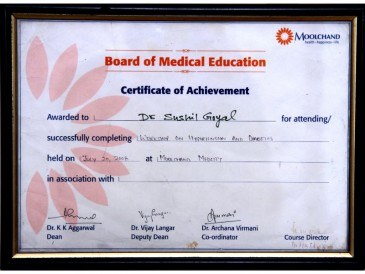 MOOLCHAND
Board of Medical Education
Certificate of Achievement
Awarded to Dr Sushil Goyal for attending/
successfully completing Workshop on Hypertension and Diabetes
held on July 30, at Moolchand Medcity
in association with
Dr. K K Aggarwal Dr. Vijay Langar Dr. Archana Virmani
Dean Deputy Dean Co-ordinator Course Director